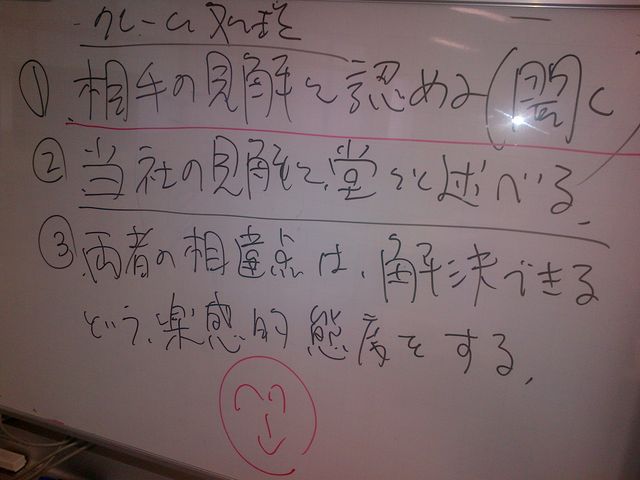 ・クレーム処理
① 相手の見解を認める(聞く
② 当社の見解を堂々と述べる。
③ 両者の相違点は、解決できる
という、楽感的態度をする。